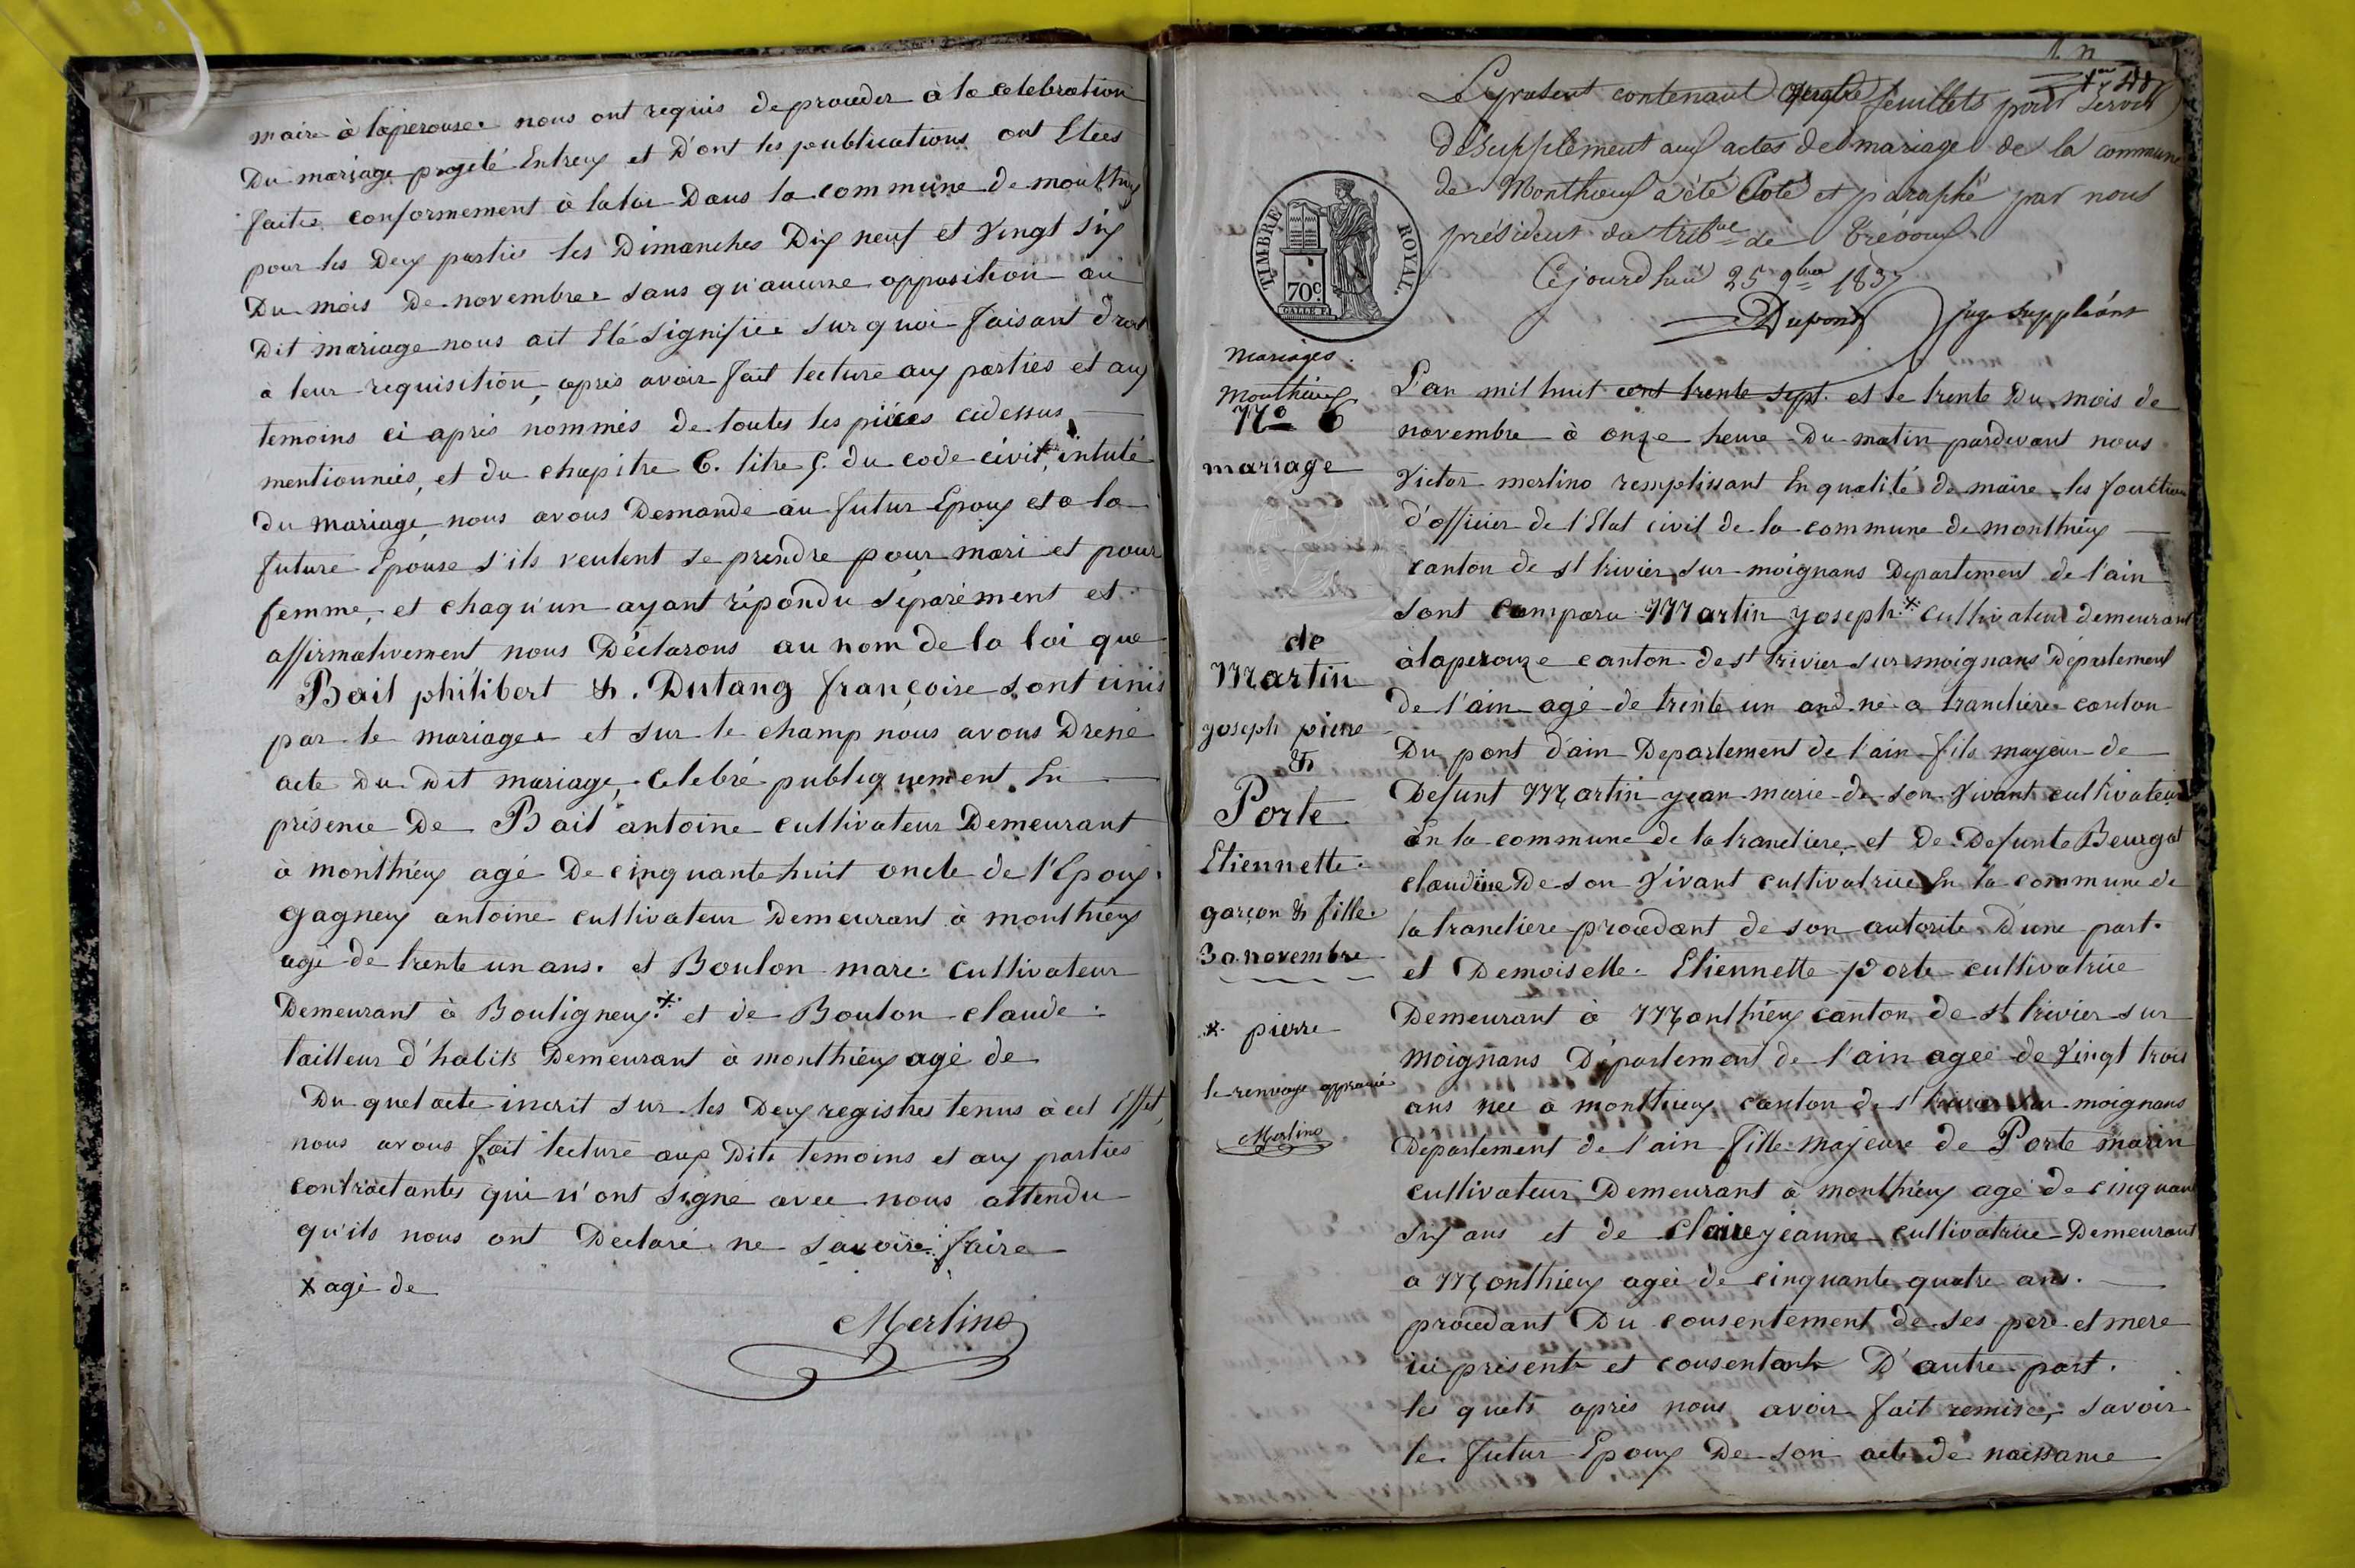 maire à laperouse. nous ont requis de proceder à la celebration
Du mariage projeté Entreux et D'ont les publications ont Etées
faites conformement à la loi Dans la commune de monthieux
pour les Deux parties les Dimanches Dix neuf et Vingt six
Du mois De novembre. sans qu'aucune opposition au
Dit mariage nous ait Eté signifiée sur quoi faisant droit
a leur requisition, après avoir fait lecture aux parties et aux
temoins ci après nommés de toutes les pièces cidessus
mentionnées, et du chapitre 6. titre 5. du code civil, intulé
du mariage, nous avons Demandé au futur Epoux et a la
future Epouse s'ils veulent se prendre pour mari et pour
femme, et chaqu'un ayant répondu séparément et
affirmativement nous Déclarons au nom de la loi que
Bail philibert & . Dutang françoise sont unis
par le mariage. et sur le champ nous avons Dréné
acte Du Dit mariage, Celebré publiquement. En
présence De Bail antoine cultivateur Demeurant
à monthiéux agé De cinquante huit oncle de l'Epoux.
gagneux antoine cultivateur Demeurant à monthieux
agé de trente un ans. et Boulon marc. cultivateur
Demeurant à Bouligneux * et de Boulon claude.
tailleur d'habits Demeurant à monthiéux agé de
Du quel acte incrit sur les Deux registres tenus à cet Effet,
nous avons fait lecture aux Dits temoins et aux parties
contractantes qui n'ont signé avec nous attendu
qu'ils nous ont Declaré ne savoire faire
x agé de
Merlino
1 n
1er
Le présent contenant quatre feuillets pour servir
de supplément aux actes de mariage de la commune
de Monthieux a été Coté et paraphé par nous
président du tribal de Trévoux
Cejourd'huy 25 9bre 1837
Dupond juge suppléant
TIMBRE ROYAL.
70c
GALLE F.
Mariages.
Monthieux
No 6
mariage
de
Martin
joseph pierre
&
Porte
Etiennette.
garçon & fille.
30 novembre
* pierre
le renvoye approuvé
Merlino
L'an mil huit cent trente sept. et le trente Du mois de
novembre à onze heure Du matin pardevant nous
Victor merlino remplissant En qualité de maire les fonctions
d'officier de l'Etat civil de la commune de monthieux
canton de st trivier sur moignans Departement de l'ain
sont comparu Martin joseph * cultivateur demeurant
à laperouze canton de st trivier sur moignans Département
de l'ain agé de trente un ans né a tranclière canton
Du pont d'ain Departement de l'ain fils majeur de
Defunt Martin jean marie de son Vivant cultivateur
En la commune de la tranclière, et De Defunte Beurgat
claudine De son Vivant cultivatrice En la commune de
la trancliere procedant de son autorité D'une part.
et Demoiselle. Etiennette porte cultivatrice
Demeurant à Monthiéux canton de st trivier sur
moignans Département de l'ain agée de Vingt trois
ans née a monthieux canton de st trivier sur moignans
Departement de l'ain fille majeure de Porte marin
cultivateur Demeurant à monthiéux agé de cinquante
six ans et de Claire jeanne cultivatrice Demeurant
a Monthieux agée de cinquante quatre ans.
procedant Du consentement de ses pere et mere
ici présents et consentants D'autre part.
les quels après nous avoir fait remise, savoir
le futur Epoux De son acte de naissance